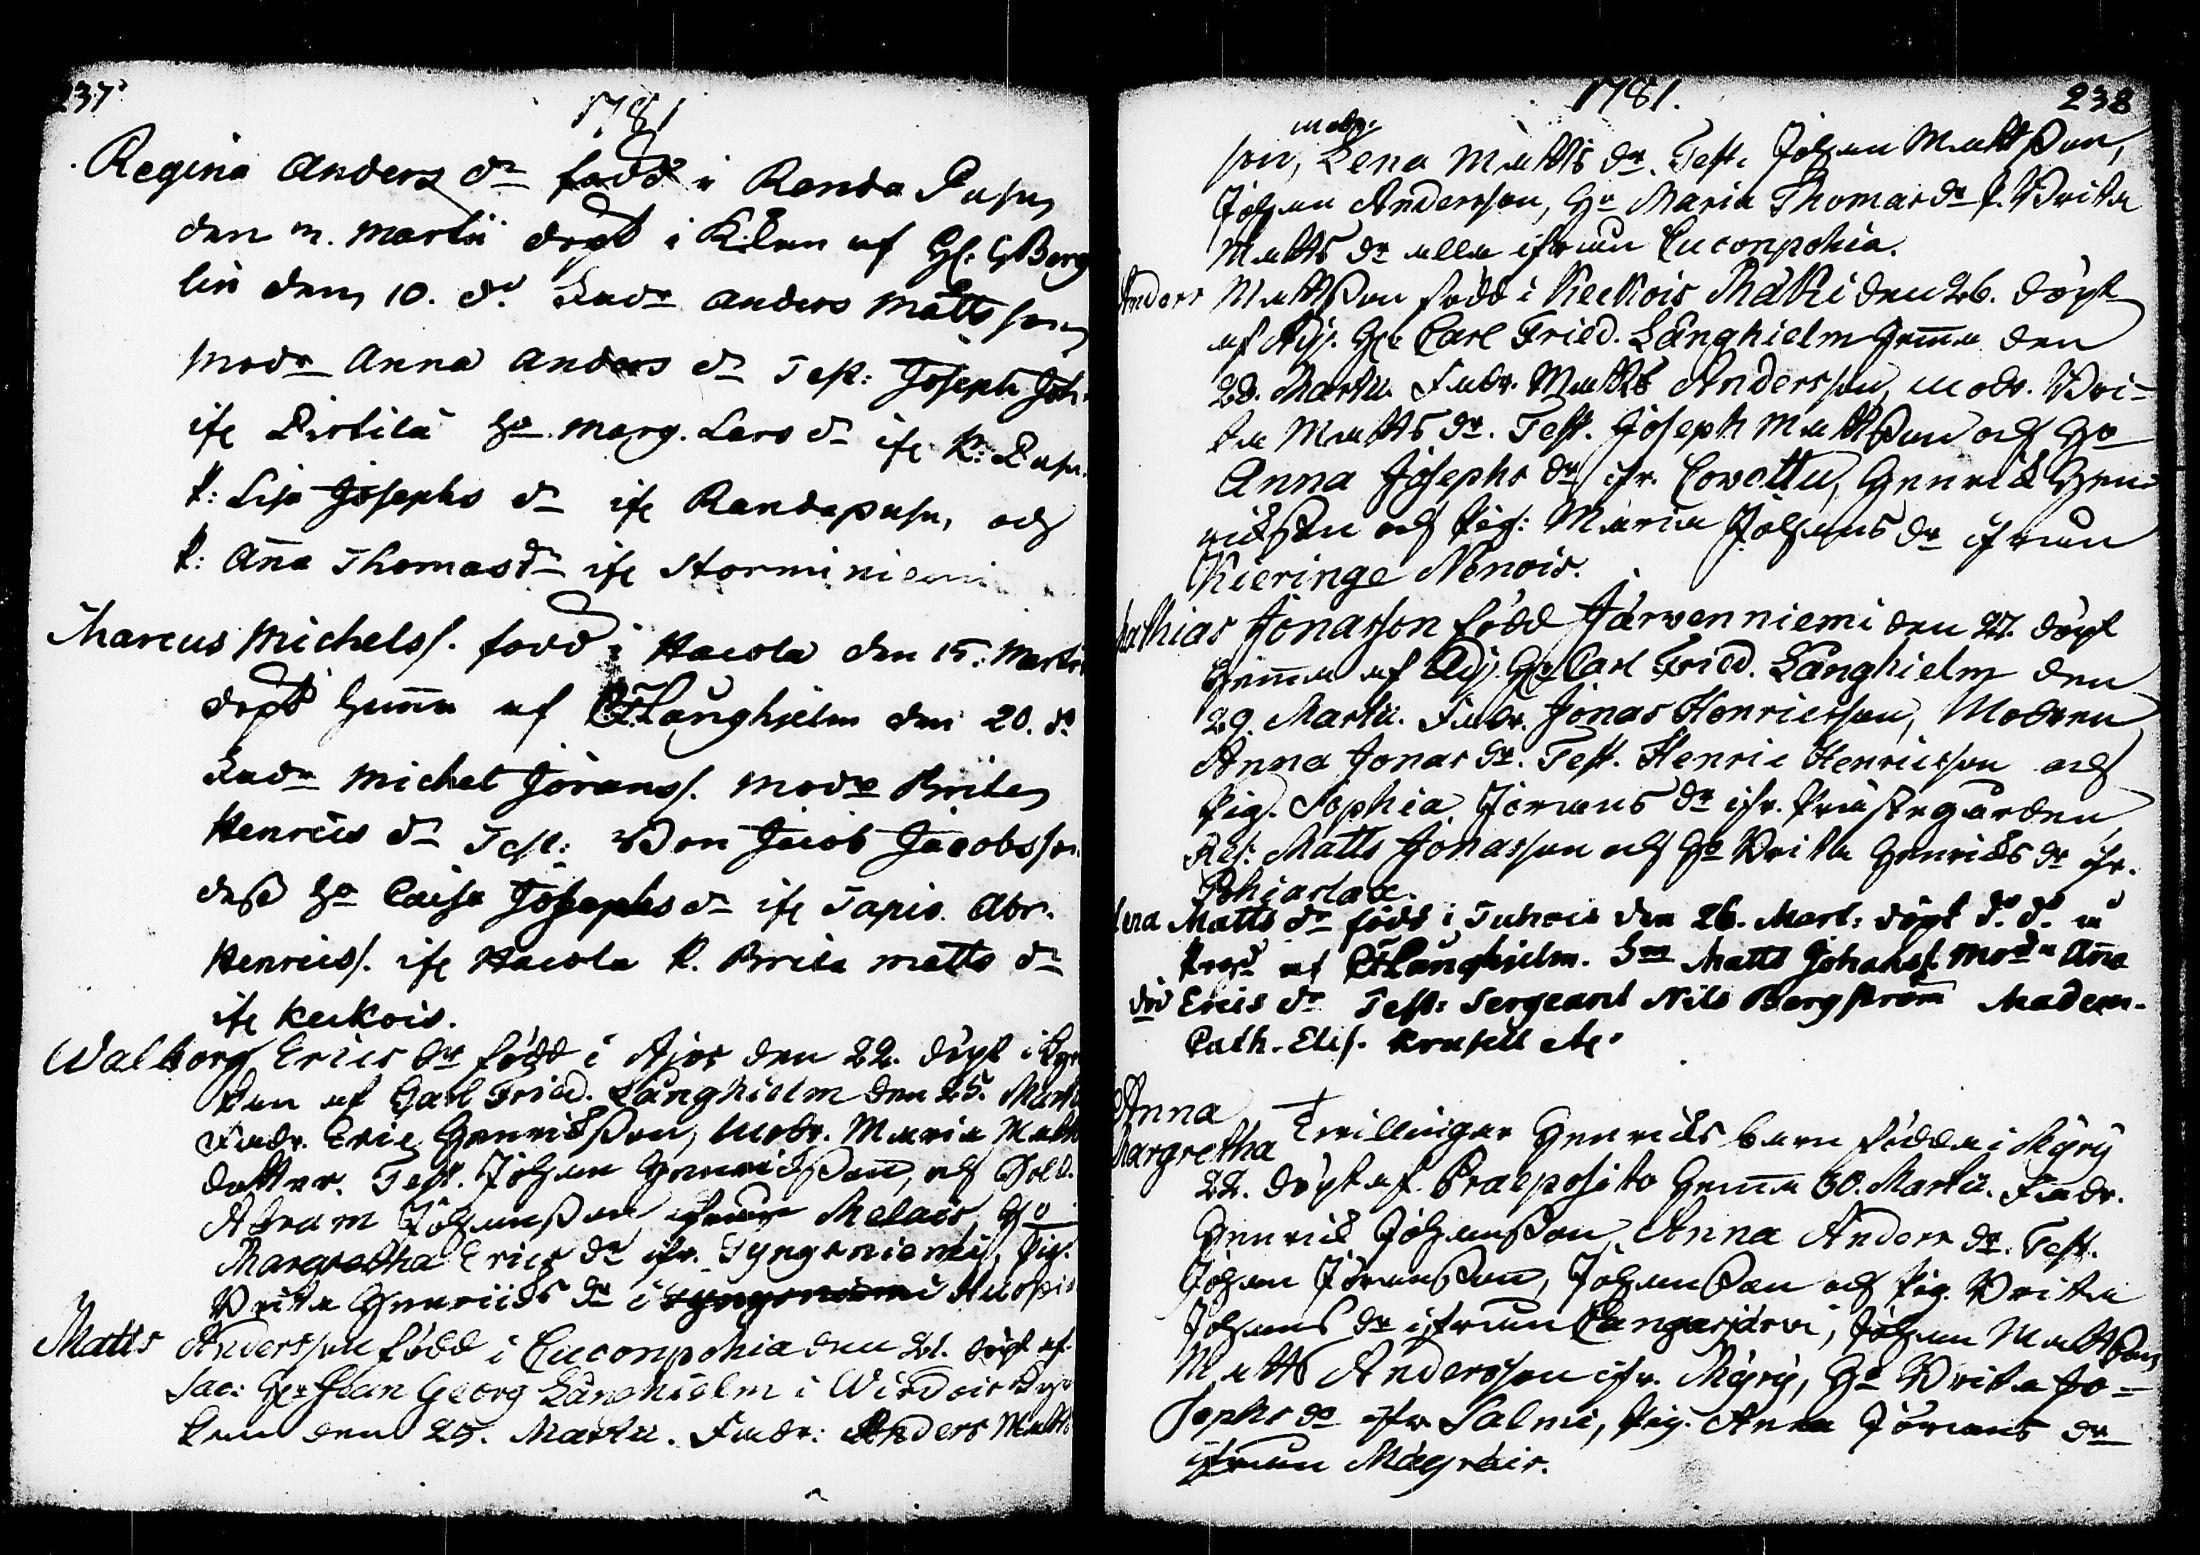 237
1781
Regina Anders dr född i Randa Pusu
den m. Martii döpt i Kÿkan af Hr: G Berg
lin den 10. do. Fadr Anders Mattsson
Modr Anna Anders dr Test: Joseph Joh.
ifr Pirtilä Ho Marg. Lars dr ifr R: Pusu.
P: Lisa Josephs dr ifr Randapusu, och
P: Aña Thomas dr ifr Storminiemi
Marcus Michelss. född i Hacola den 15. Martii
döpt hemma af CFLånghjelm den 20. do
Fadr Michel Jöranss. Modr Brita
Henrics dr Test: Bon Jacob Jacobsson
dess Ho Caisa Josephs dr ifr Tapio. Abr.
Henricss. ifr Hacola P. Brita Matts dr
ifr Keikois.
Walborg Erics dr född i Ajos den 22. döpt i Kyr
kan af Carl Fried. Långhielm den 25. Martii
Fadr. Eric Henricksson, Modr. Maria Matts
dotter. Test. Johan Henricksson, och Sold.
Abram Johansson ifrån Melais, Ho
Margretha Erics dr ifr. Syngoniemi, Pig.
Brita Henricks dr i Syngoniemi Huopis
Matts Andersson född i Cuconpohia den 21. döpt af
Sac: Hr Joan Georg Långhielm i Wirdois Kyr
kan den 25. Martii. Fadr: Anders Matts
1781.
238
modr.
son, Lena Matts dr. Test. Johan Mattsson,
Johan Andersson, Ho Maria Thomas dr P. Brita
Matts dr alla ifrån Cuconpohia.
Anders Mattsson född i Keckois Mäki den 26. döpt
af Adj. Hr Carl Fried. Långhielm hemma den
28. Martii. Fadr. Matts Andersson, Modr. Bri-
ta Matts dr. Test. Joseph Mattsson och Ho
Anna Josephs dr ifr. Cowettu, Henrick Hen
ricksson och Pig: Maria Johans dr ifrån
Kieringe Nenois.
Mathias Jonasson född Järvenniemi den 27. döpt
hemma af Adj. Hr Carl Fried. Långhielm den
29. Martii. Fadr. Jonas Henricsson, Modren
Anna Jonas dr. Test. Henric Henricsson och
Pig. Sophia Jörans dr ifr. Prästegården
Res. Matts Jonasson och Ho Brita Henricks dr ifr.
Pohiaslax.
Lena Matts dr född i Tuhois den 26. Mart: döpt d. do. i
Prgd af CFLånghielm. Matts Johanss. Modr Aña
Erics dr Test: Sergeant Nils Bergström Madem.
Cath. Elis. Krusell etc.
Anna
Margretha Twillingar Henricks barn födda i Mÿrÿ
22. döpt af Praeposito hemma 30. Martii. Fadr.
Henrick Johansson, Anna Anders dr. Test.
Johan Jöransson, Johansson och Pig. Brita
Johans dr ifrån Cangasjärvi, Johan Mattsson,
Matts Andersson ifr. Mÿrÿ, Ho Brita Jo-
sephs dr ifr Salmi, Pig. Anna Jörans dr
ifrån Mäyräis.